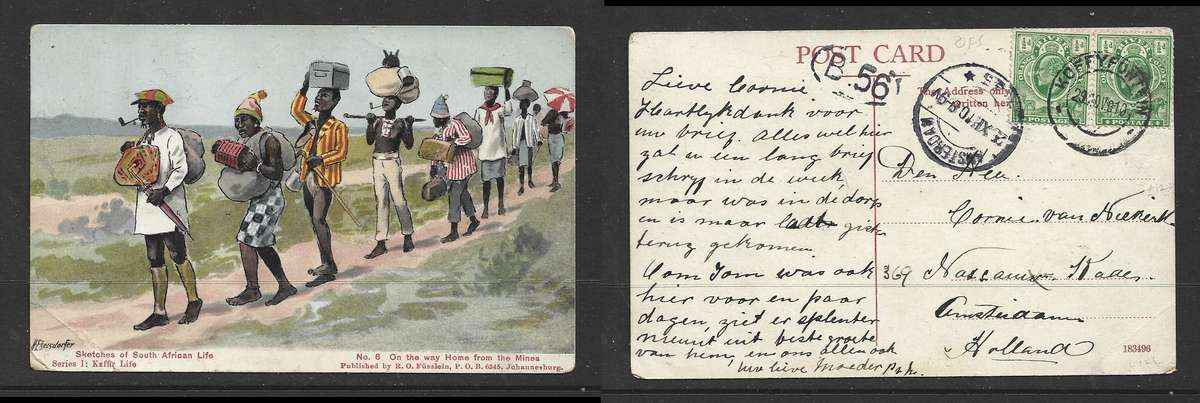 HEgersdorfer
Sketches of South African Life
Series 1: Kaffir Life
No. 6 On the way Home from the Mines
Published by R. O. Füsslein, P. O. B. 6345, Johannesburg.
OFS
POST CARD
The Address only
written her
B 56
AMSTERDAM
KOFFYFONTEIN
POSTAGE
POSTAGE
Lieve Cornie
Hartlykdank voor
uw brief. Alles wel hier
zal u een lang brief
schryf in de week
maar was in de dorp
en is maar laat
terug gekomen
Oom Tom was ook
hier voor en paar
dagen, ziet er splenter
nieuw uit beste groete
van hem, en ons allen ook
uw lieve Moeder
Den Heer
Cornie van Niekerk
369 Nassauw Kade
Amsterdam
Holland
183496